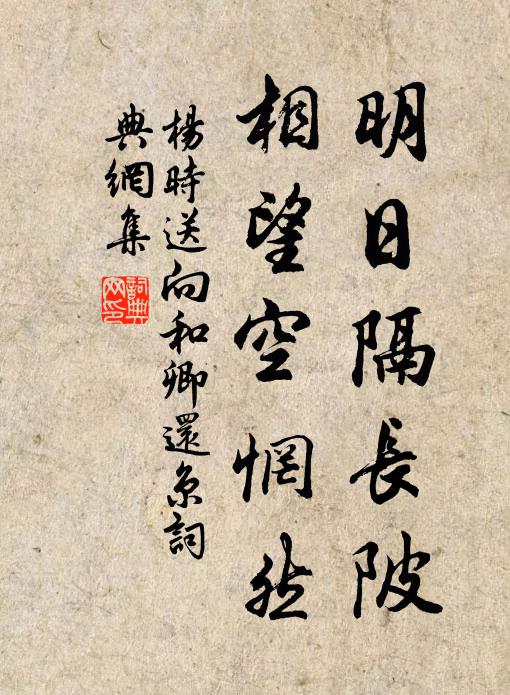 明日隔長陂
相望空惘然
楊時送向和卿還京詞
典網集
詞典網印